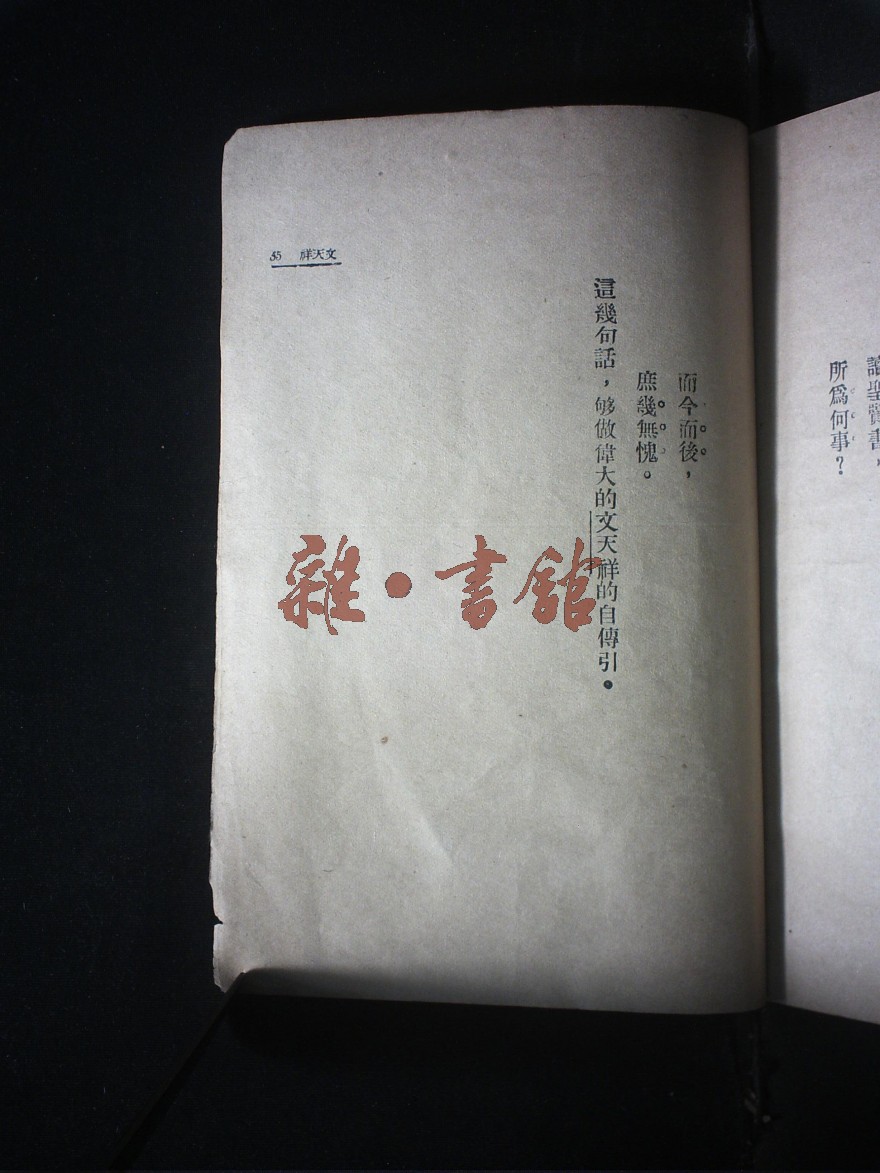 讀聖賢書，
所爲何事？
而今而後，
庶幾無愧。
這幾句話，够做偉大的文天祥的自傳引。
35　祥天文
雜•書館